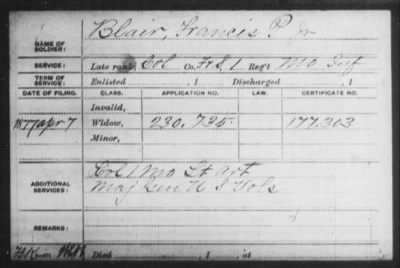 Blair, Francis P. Jr
NAME OF SOLDIER:
SERVICE: Late rank, Col Co. F&S 1 Reg't Mo Inf
TERM OF SERVICE: Enlisted , 1 Discharged , 1
DATE OF FILING. CLASS. APPLICATION NO. LAW. CERTIFICATE NO.
Invalid,
1877 Apr 7 Widow, 230,735. 177,303
Minor,
ADDITIONAL SERVICES: Col 1 Mo Lt Art
Maj Gen U S Vols
REMARKS:
Died , 1 , at